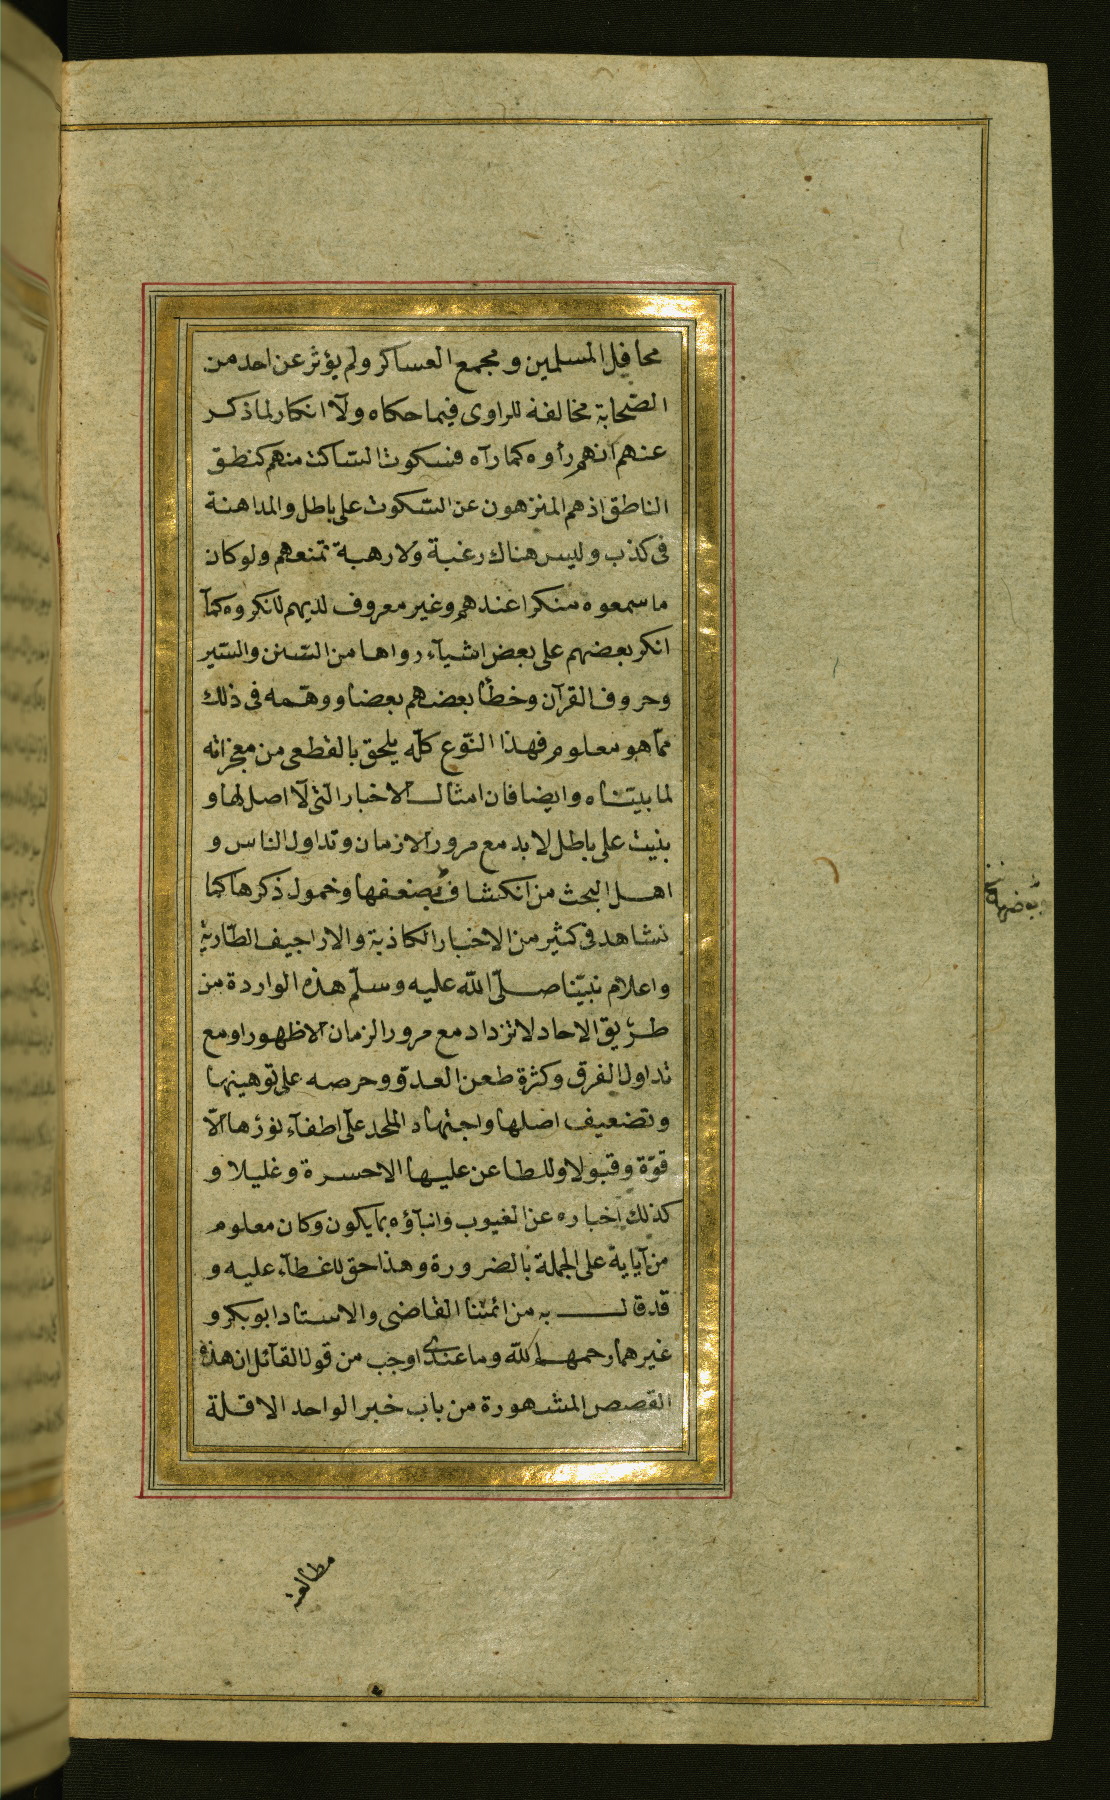 محافل المسلمين ومجمع العساكر ولم يؤثر عن احد من
الصّحابة مخالفة للراوى فيما حكاه ولآ انكار لما ذكر
عنهم انهم رأوه كما رآه فسكوت السّاكت منهم كنطق
الناطق اذ هم المنزهون عن السّكوت على باطل والمداهنة
فى كذب وليس هناك رغبة ولا رهبة تمنعهم ولو كان
ما سمعوه منكرا عندهم وغير معروف لديهم لانكروه كمآ
انكر بعضهم على بعض اشيآء رواها من السّنن والسّير
وحروف القرآن وخطّأ بعضهم بعضا ووهّمه فى ذلك
ممّا هو معلوم فهذا النّوع كلّه يلحق بالقطعى من معجزاته
لما بيّنّاه وايضا فان امثال الاخبار الّتى لآ اصل لها و
بنيت على باطل لا بد مع مرور الازمان وتداول الناس و
اهل البحث من انكشاف ضعفها وخمول ذكرها كما
نشاهد فى كثير من الاخبار الكاذبة والاراجيف الطّارية
واعلام نبيّنا صلّى اللّه عليه وسلّم هذه الواردة من
طريق الاحاد لا تزداد مع مرور الزمان الا ظهورا ومع
تداول الفرق وكثرة طعن العدوّ وحرصه على توهينها
وتضعيف اصلها واجتهاد الملحد على اطفآء نورها الّا
قوّة وقبولا وللطاعن عليها الا حسرة وغليلا و
كذلك اخباره عن الغيوب وانبآؤه بما يكون وكان معلوم
من آياية على الجملة بالضرورة وهذا حق لا غطآء عليه و
قد قال به من ائمّتنا القاضى والاستاد ابو بكر و
غيرهما رحمهما اللّه وما عندى اوجب من قول القآئل ان هذه
القصص المشهورة من باب خبر الواحد الا قلة
مطالعته